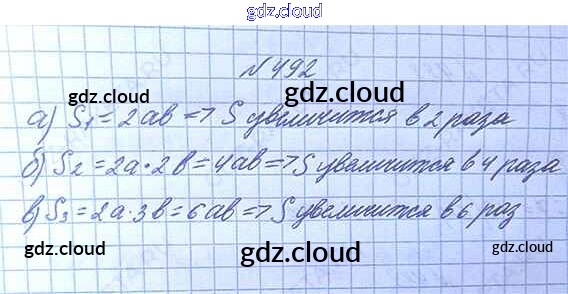 gdz.cloud
N 492
gdz.cloud gdz.cloud
а) S₁ = 2ab => S увеличится в 2 раза
gdz.cloud gdz.cloud
б) S₂ = 2a·2b = 4ab => S увеличится в 4 раза
в) S₃ = 2a·3b = 6ab => S увеличится в 6 раз
gdz.cloud gdz.cloud
gdz.cloud